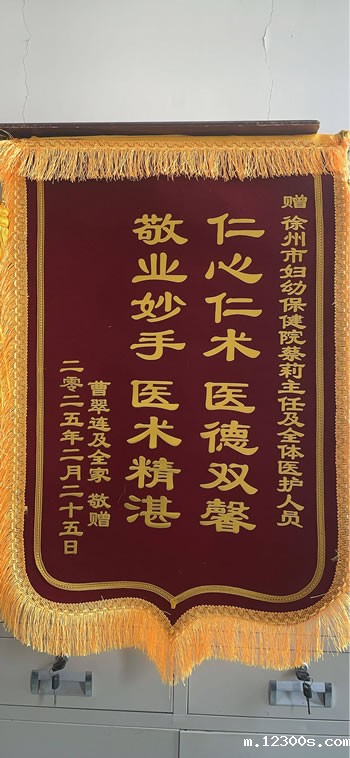 赠 徐州市妇幼保健院蔡莉主任及全体医护人员
仁心仁术 医德双馨
敬业妙手 医术精湛
曹翠连及全家 敬赠
二零二五年二月二十五日
m.12300s.com